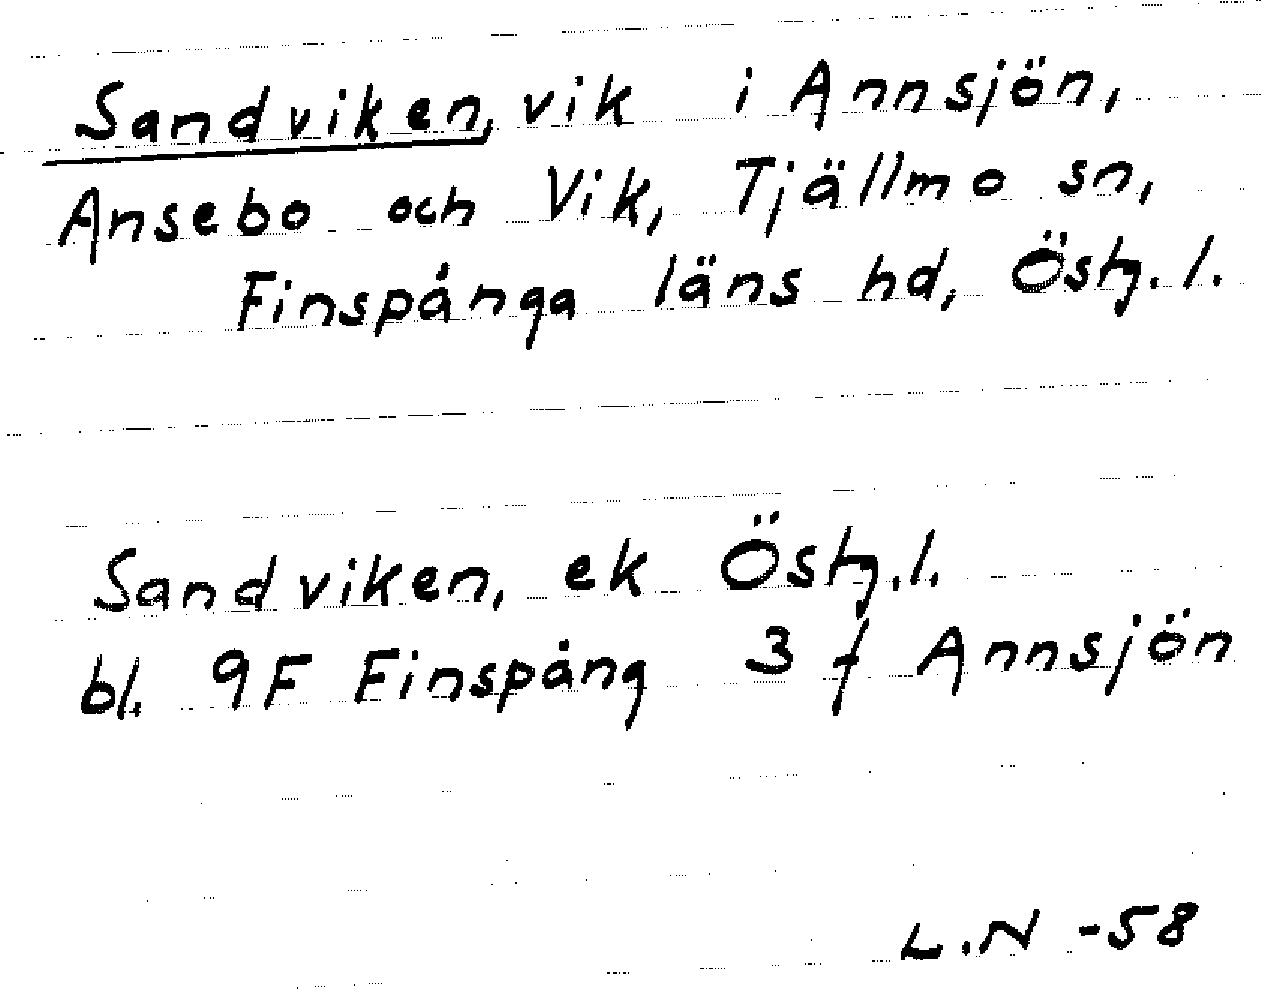 Sandviken, vik i Annsjön,
Ansebo och Vik, Tjällmo sn,
Finspånga läns hd, Östg. l.
Sandviken, ek Östg. l.
bl. 9F Finspång 3 f Annsjön
L.N -58